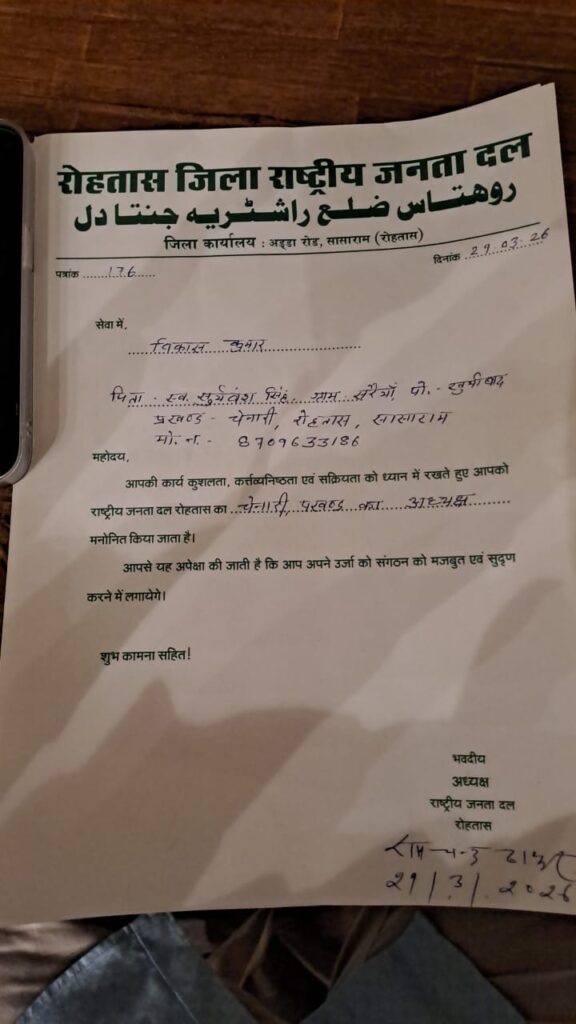 रोहतास जिला राष्ट्रीय जनता दल
روهتاس ضلع راشٹریہ جنتا دل
जिला कार्यालय : अड्डा रोड, सासाराम (रोहतास)
पत्रांक ........176.......
दिनांक ..29.03.26
सेवा में,
विकास कुमार
पिता - स्व. सुर्यवंश सिंह, ग्राम सरैयाँ, पो. -
प्रखण्ड - चेनारी, रोहतास, सासाराम
मो. न. - 8709633186
महोदय,
आपकी कार्य कुशलता, कर्त्तव्यनिष्ठता एवं सक्रियता को ध्यान में रखते हुए आपको
राष्ट्रीय जनता दल रोहतास का चेनारी, प्रखण्ड का अध्यक्ष
मनोनित किया जाता है।
आपसे यह अपेक्षा की जाती है कि आप अपने उर्जा को संगठन को मजबुत एवं सुदृण
करने में लगायेगे।
शुभ कामना सहित!
भवदीय
अध्यक्ष
राष्ट्रीय जनता दल
रोहतास
29/3/2026